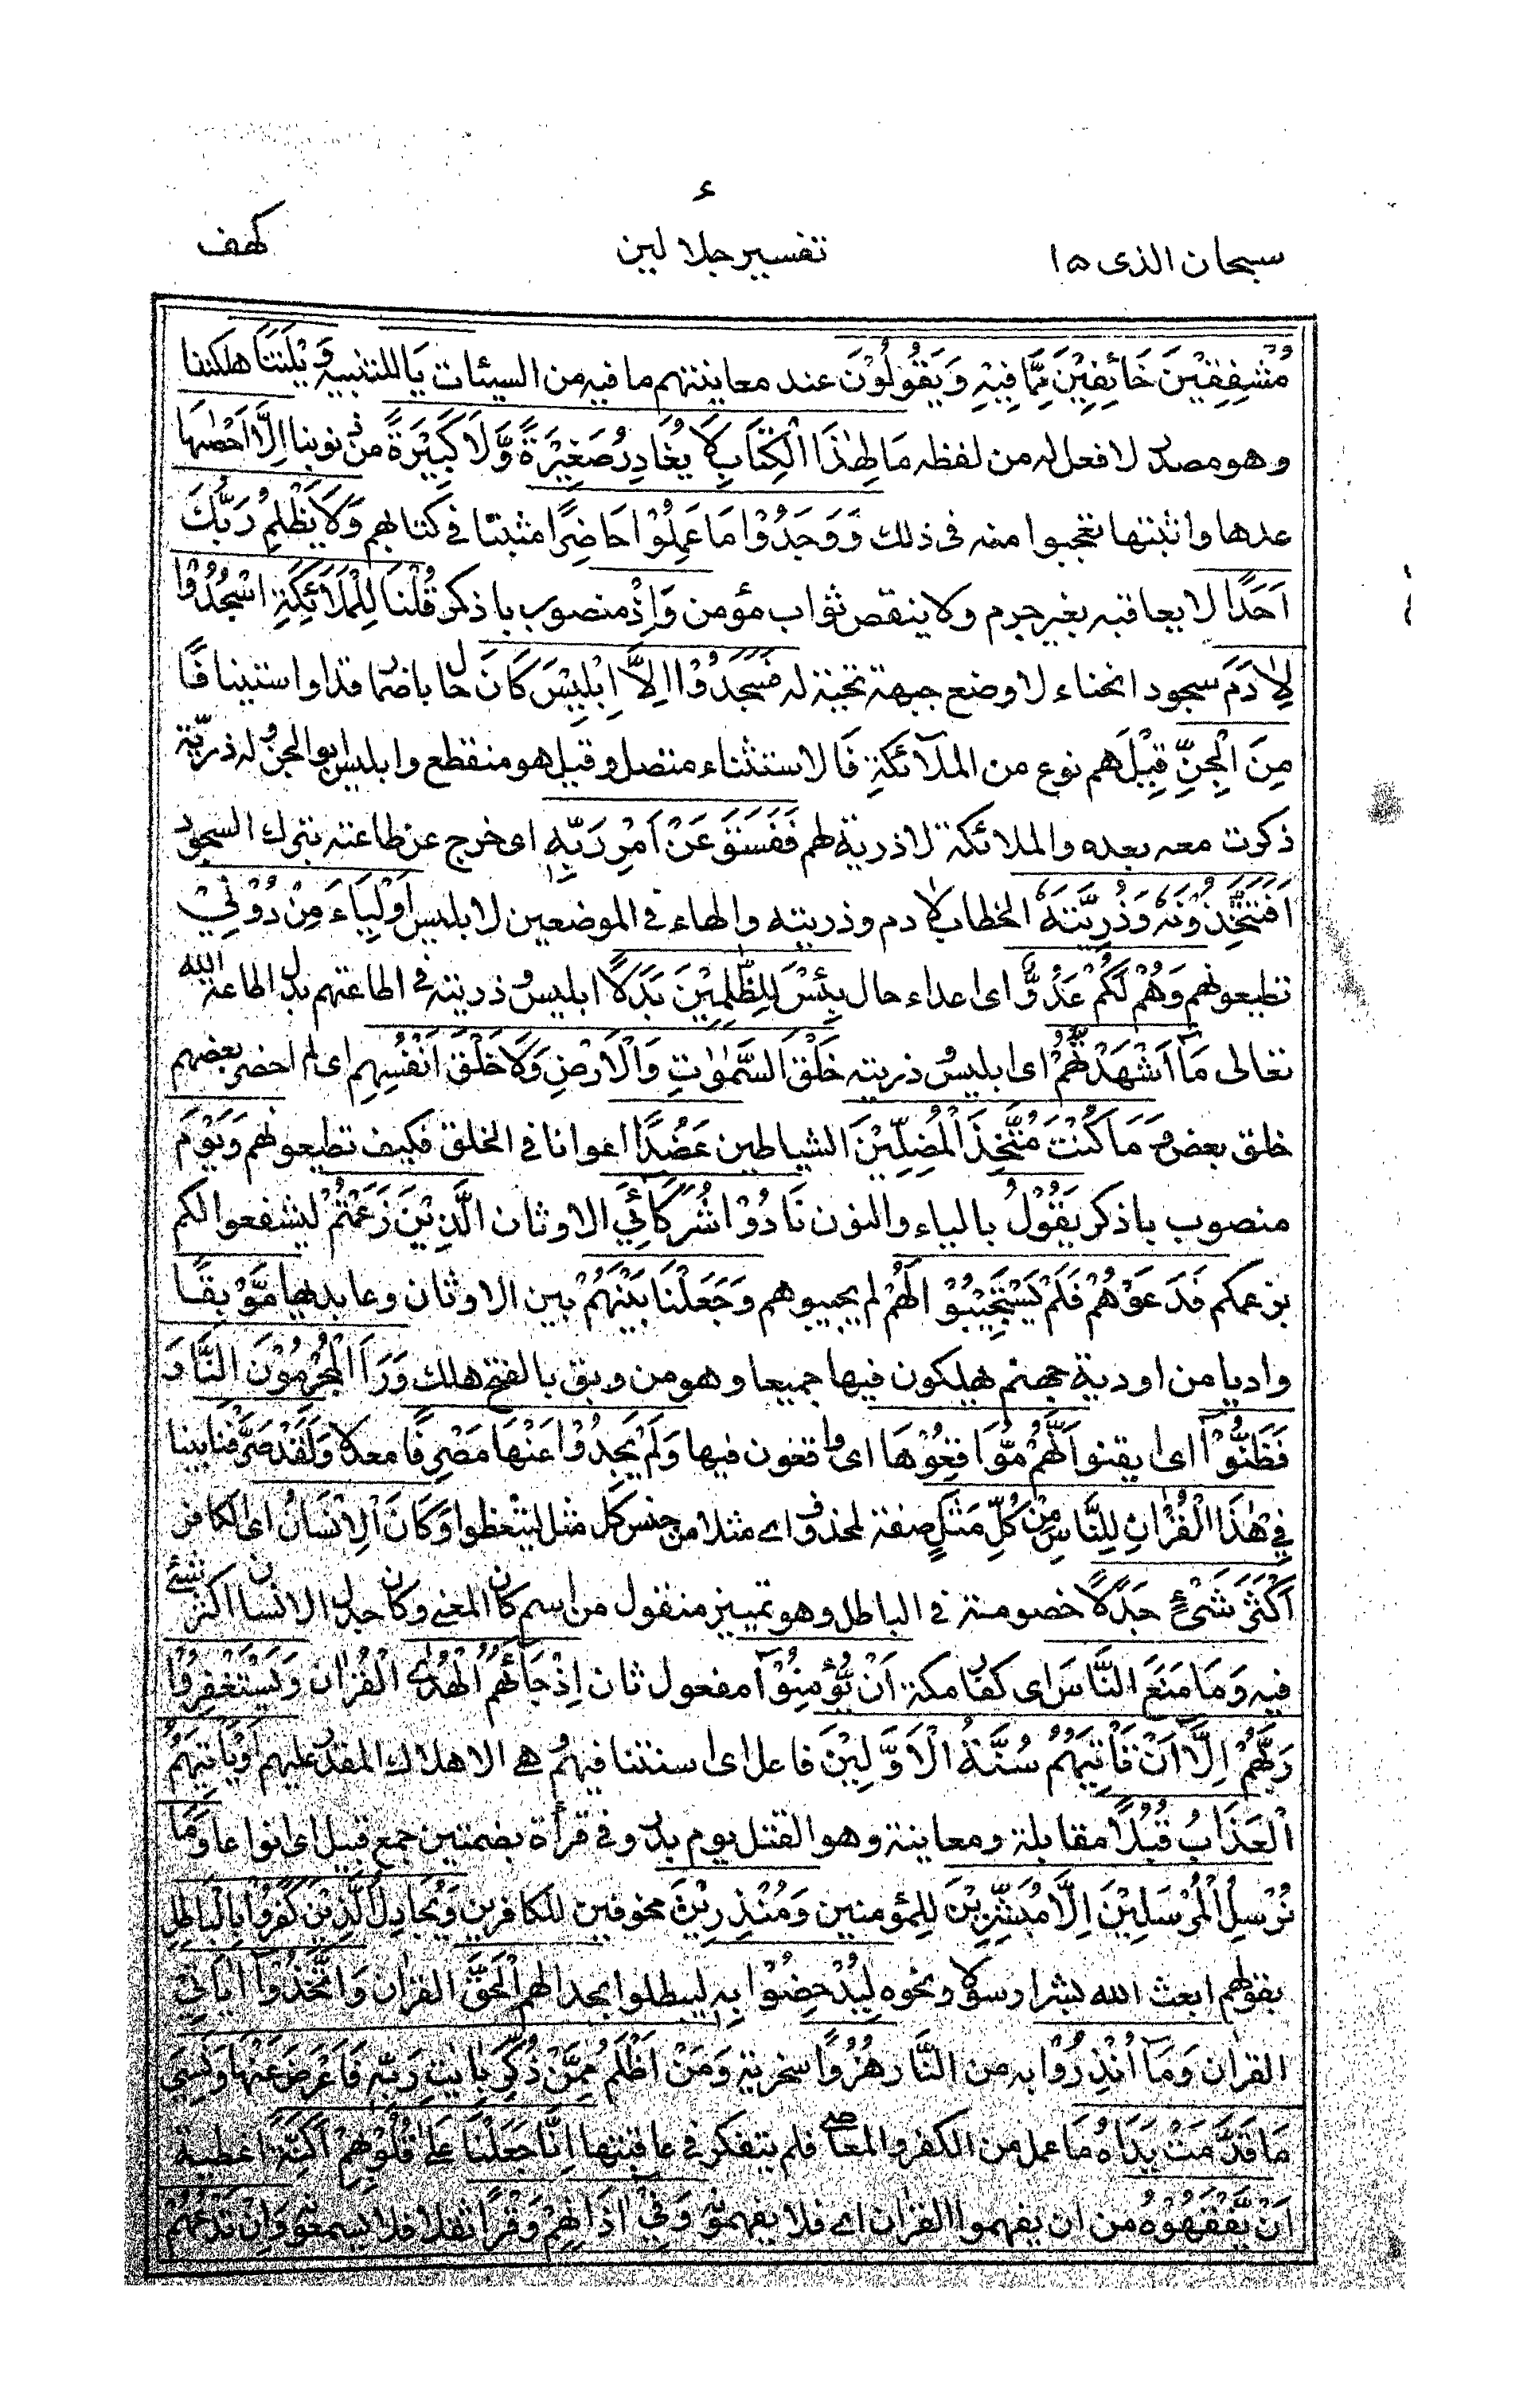 ء
سبحان الذى ١٥ تفسير جلا لين كهف
مُشْفِقِيْنَ خَائِفِيْنَ مِمَّا فِيْهِ وَيَقُولُوْنَ عند معاينتهم ما فيه من السيئات يَا للتنبيه وَيْلَتَنَا هلكتنا
وهو مصدر لا فعل له من لفظه مَا لِهٰذَا الْكِتَابِ لَا يُغَادِرُ صَغِيْرَةً وَّلَا كَبِيْرَةً من ذنوبنا اِلَّا اَحْصٰىهَا
عدها واثبتها تعجبوا منه فى ذلك وَوَجَدُوْا مَا عَمِلُوْا حَاضِرًا مثبتا فى كتابهم وَلَا يَظْلِمُ رَبُّكَ
اَحَدًا لا يعاقبه بغير جرم ولا ينقص ثواب مؤمن وَاِذْ منصوب باذكر قُلْنَا لِلْمَلَائِكَةِ اسْجُدُوْا
لِاٰدَمَ سجود انحناء لا وضع جبهة تحية له فَسَجَدُوْا اِلَّا اِبْلِيْسَ كَانَ حال باضمار قد او استينافا
مِنَ الْجِنِّ قِيْلَ هم نوع من الملآئكة فَالاستثناء متصل وقيل هو منقطع وابليس ابو الجن وله ذريّة
ذكرت معه بعده والملائكة لا ذرية لهم فَفَسَقَ عَنْ اَمْرِ رَبِّهِ اى خرج عن طاعته بترك السجود
اَفَتَتَّخِذُوْنَهٗ وَذُرِّيَّتَهٗ الخطاب لاٰدم وذريته والهاء فى الموضعين لابليس اَوْلِيَاءَ مِنْ دُوْنِيْ
تطيعونهم وَهُمْ لَكُمْ عَدُوٌّ اى اعداء حال بِئْسَ لِلظّٰلِمِيْنَ بَدَلًا ابليس وذريته فى اطاعتهم بدل اطاعة الله
تعالى مَآ اَشْهَدْتُّهُمْ اى ابليس وذريته خَلْقَ السَّمٰوٰتِ وَالْاَرْضِ وَلَا خَلْقَ اَنْفُسِهِمْ اى لم احضر بعضهم
خلق بعض وَمَا كُنْتُ مُتَّخِذَ الْمُضِلِّيْنَ الشياطين عَضُدًا اعوانا فى الخلق فكيف تطيعونهم وَيَوْمَ
منصوب باذكر يَقُوْلُ بالياء والنون نَادُوْا شُرَكَائِيَ الاوثان الَّذِيْنَ زَعَمْتُمْ ليشفعوا لكم
بزعمكم فَدَعَوْهُمْ فَلَمْ يَسْتَجِيْبُوْا لَهُمْ لم يجيبوهم وَجَعَلْنَا بَيْنَهُمْ بين الاوثان وعابديها مَّوْبِقًا
واديا من اودية جهنم يهلكون فيها جميعا وهو من وبق بالفتح هلك وَرَاَ الْمُجْرِمُوْنَ النَّارَ
فَظَنُّوْآ اى ايقنوا اَنَّهُمْ مُّوَاقِعُوْهَا اى واقعون فيها وَلَمْ يَجِدُوْا عَنْهَا مَصْرِفًا معدلا وَلَقَدْ صَرَّفْنَا بينا
فِيْ هٰذَا الْقُرْاٰنِ لِلنَّاسِ مِنْ كُلِّ مَثَلٍ صفة لمحذوف اى مثلا من جنس كل مثل ليتعظوا وَكَانَ الْاِنْسَانُ اى الكافر
اَكْثَرَ شَيْءٍ جَدَلًا خصومة فى الباطل وهو تمييز منقول من اسم كان المعنى وكان جدل الانسان اكثر شئ
فيه وَمَا مَنَعَ النَّاسَ اى كفار مكة اَنْ يُّؤْمِنُوْآ مفعول ثان اِذْ جَآئَهُمُ الْهُدٰى القُرْاٰن وَيَسْتَغْفِرُوْا
رَبَّهُمْ اِلَّا اَنْ تَأْتِيَهُمْ سُنَّةُ الْاَوَّلِيْنَ فاعل اى سنتنا فيهم وهى الاهلاك المقدر عليهم اَوْ يَاْتِيَهُمُ
الْعَذَابُ قُبُلًا مقابلة ومعاينة وهو القتل يوم بدر وفى قرأة بضمتين جمع قبيل اى انواعا وَمَا
نُرْسِلُ الْمُرْسَلِيْنَ اِلَّا مُبَشِّرِيْنَ للمؤمنين وَمُنْذِرِيْنَ مخوفين للكافرين وَيُجَادِلُ الَّذِيْنَ كَفَرُوْا بِالْبَاطِلِ
بقولهم ابعث الله بشرا رسولا ونحوه لِيُدْحِضُوْا بِهِ ليبطلوا بجدالهم الْحَقَّ القراٰن وَاتَّخَذُوْآ اٰيَاتِيْ
القراٰن وَمَآ اُنْذِرُوْا به من النَّار هُزُوًا سخرية وَمَنْ اَظْلَمُ مِمَّنْ ذُكِّرَ بِاٰيٰتِ رَبِّهِ فَاَعْرَضَ عَنْهَا وَنَسِيَ
مَا قَدَّمَتْ يَدَاهُ مَا عمل من الكفر والمعاصى فلم يتفكر فى عاقبتها اِنَّا جَعَلْنَا عَلٰى قُلُوْبِهِمْ اَكِنَّةً اغطية
اَنْ يَّفْقَهُوْهُ من ان يفهموا القراٰن اى فلا يفهمونه وَفِيْ اٰذَانِهِمْ وَقْرًا ثقلا فلا يسمعونه وَاِنْ تَدْعُهُمْ